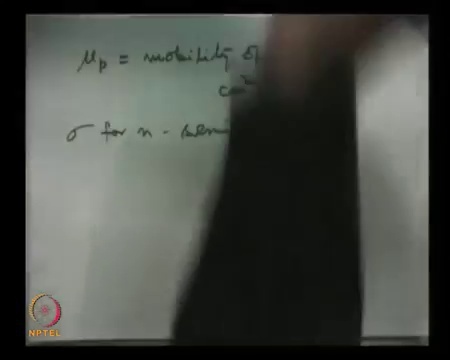 μp = mobility of
cm²
σ for n - semi
NPTEL